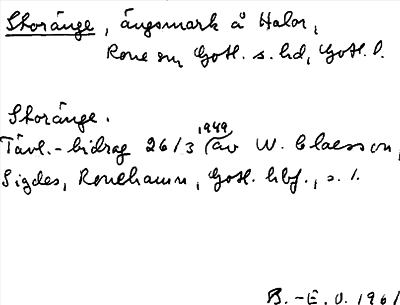 Storänge, ängsmark å Halor,
Rone sn Gotl. s. hd, Gotl. l.
Storänge.
Tävl.-bidrag 26/3 1949 av W. Claesson,
Sigdes, Ronehamn, Gotl. hbf., s. 1.
B.-E. O. 1961